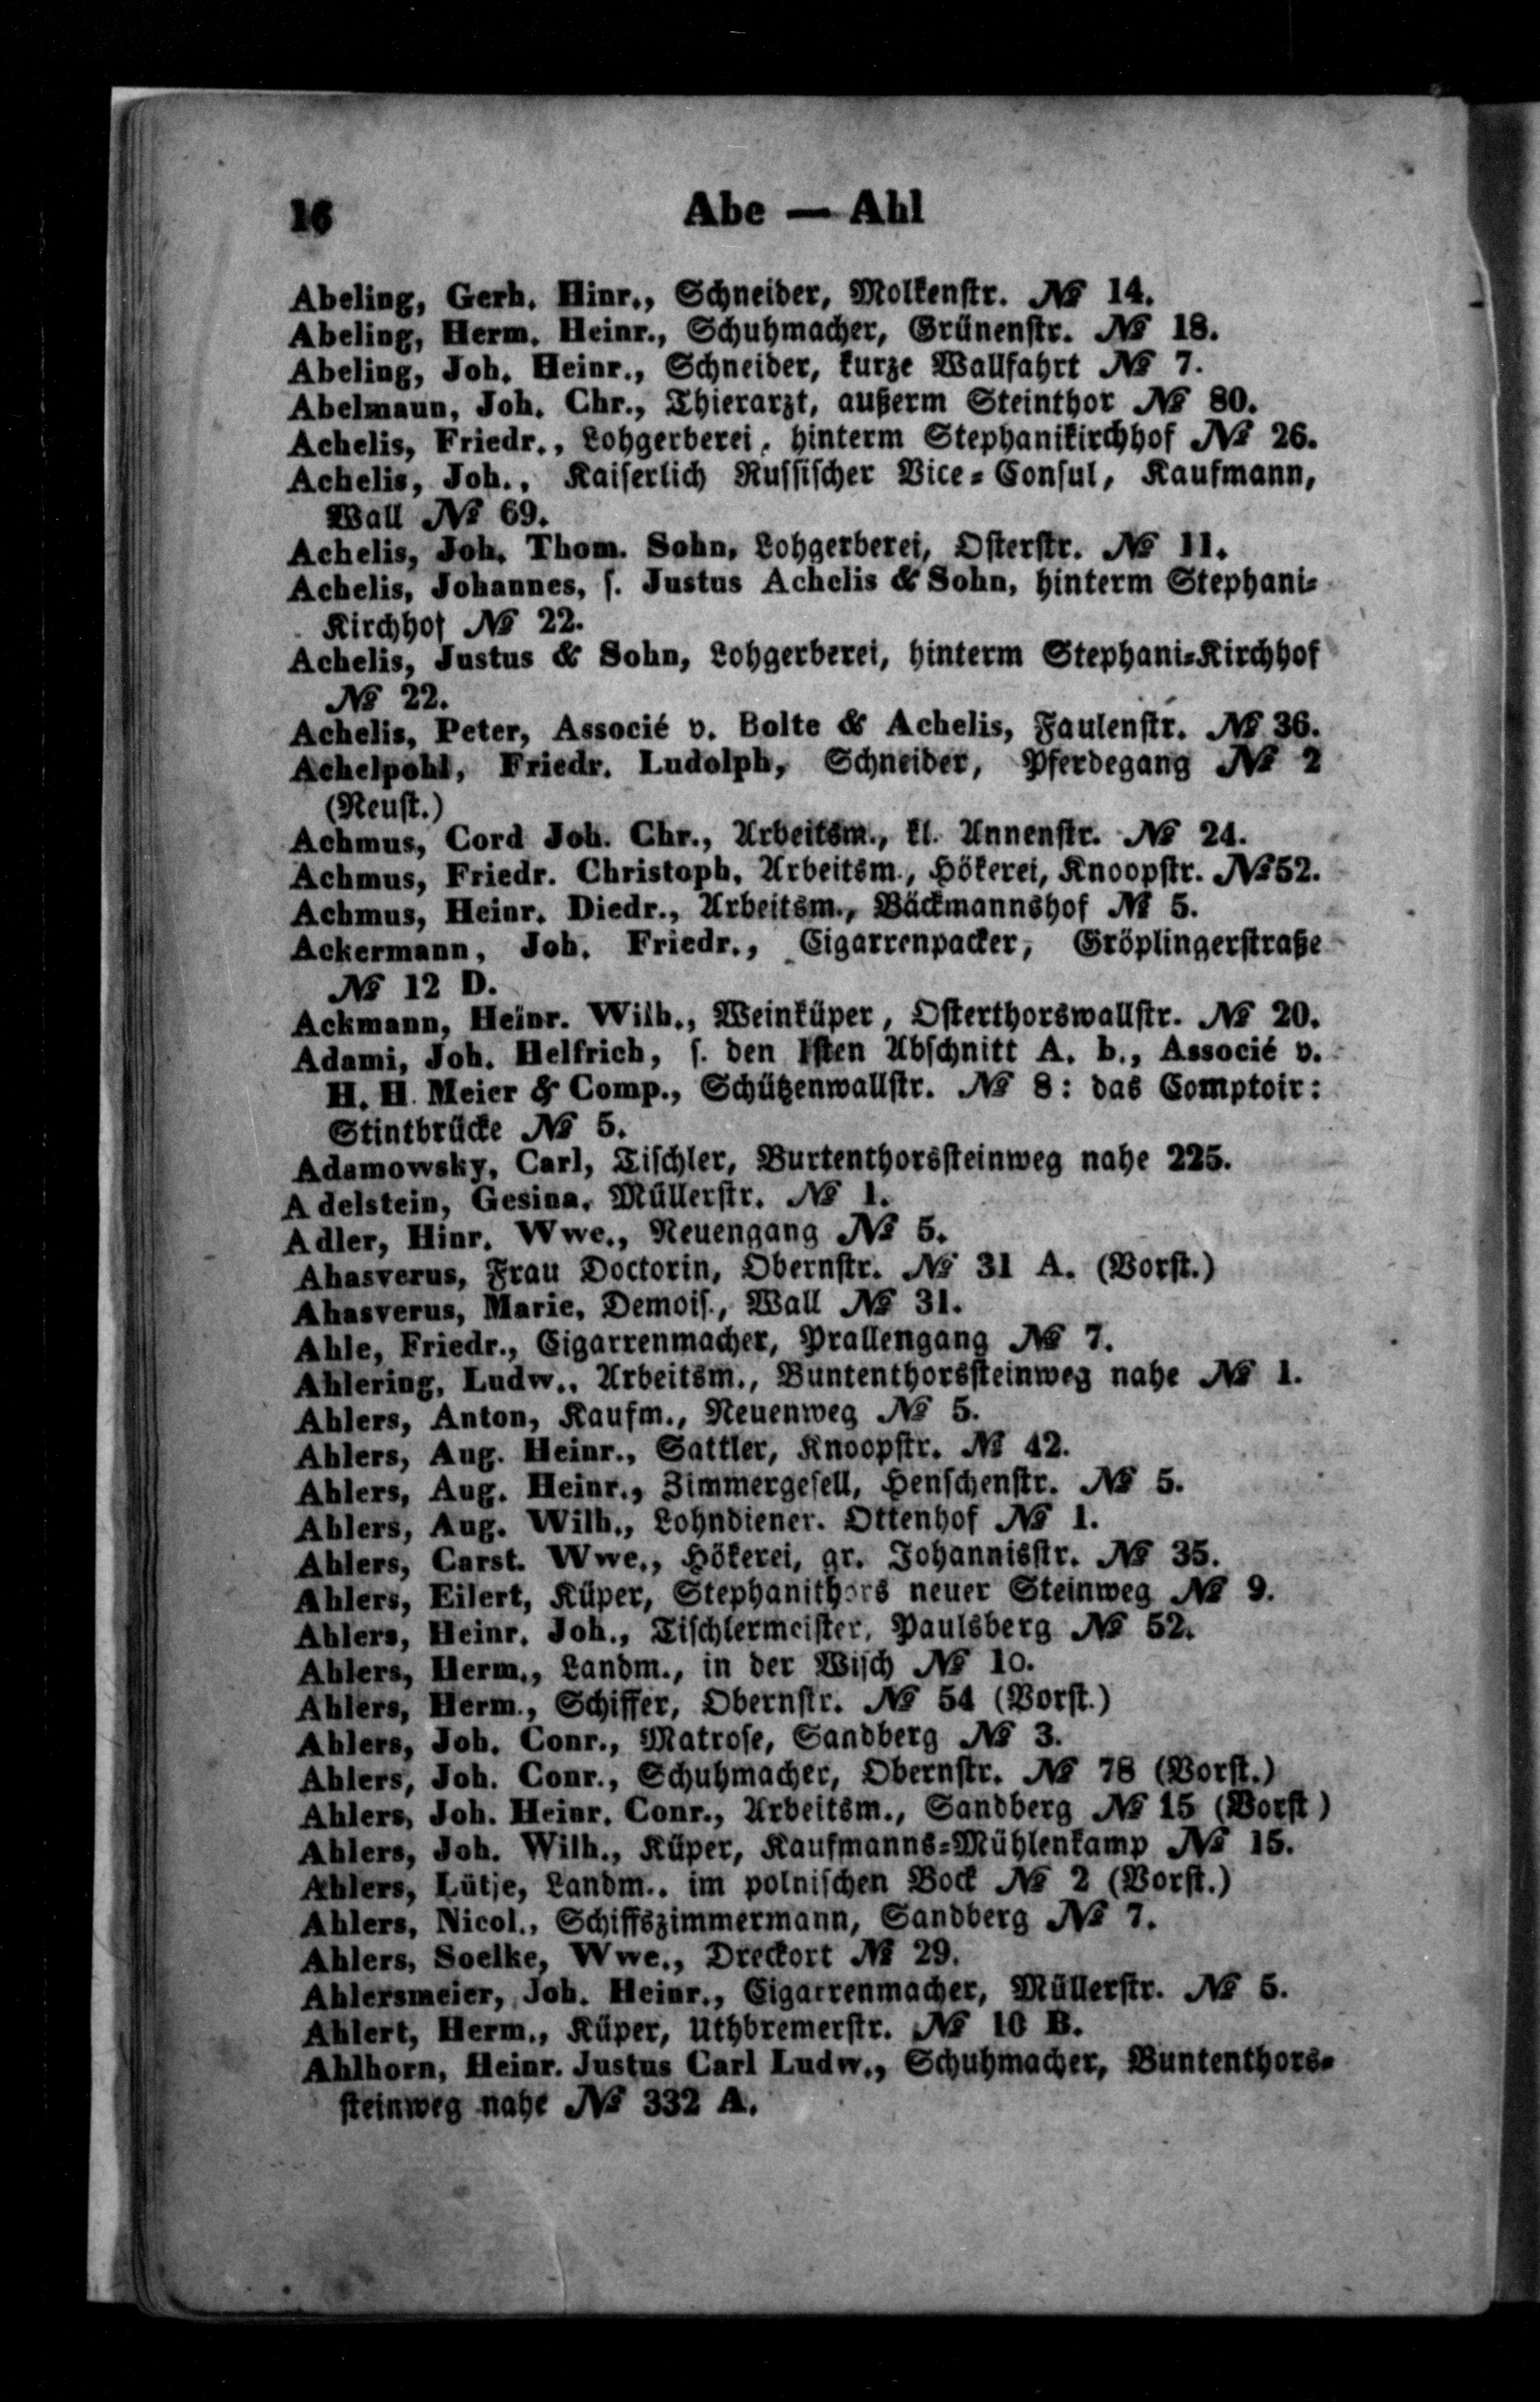 16
Abe — Ahl
Abeling, Gerh. Hinr., Schneider, Molkenstr. № 14.
Abeling, Herm. Heinr., Schuhmacher, Grünenstr. № 18.
Abeling, Joh. Heinr., Schneider, kurze Wallfahrt № 7.
Abelmaun, Joh. Chr., Thierarzt, außerm Steinthor № 80.
Achelis, Friedr., Lohgerberei, hinterm Stephanikirchhof № 26.
Achelis, Joh., Kaiserlich Russischer Vice-Consul, Kaufmann,
Wall № 69.
Achelis, Joh. Thom. Sohn, Lohgerberei, Osterstr. № 11.
Achelis, Johannes, s. Justus Achelis & Sohn, hinterm Stephani-
Kirchhof № 22.
Achelis, Justus & Sohn, Lohgerberei, hinterm Stephani-Kirchhof
№ 22.
Achelis, Peter, Associé v. Bolte & Achelis, Faulenstr. № 36.
Achelpohl, Friedr. Ludolph, Schneider, Pferdegang № 2
(Neust.)
Achmus, Cord Joh. Chr., Arbeitsm., kl. Annenstr. № 24.
Achmus, Friedr. Christoph, Arbeitsm., Hökerei, Knoopstr. № 52.
Achmus, Heinr. Diedr., Arbeitsm., Bäckmannshof № 5.
Ackermann, Joh. Friedr., Cigarrenpacker, Gröplingerstraße
№ 12 D.
Ackmann, Heinr. Wilh., Weinküper, Osterthorswallstr. № 20.
Adami, Joh. Helfrich, s. den 1sten Abschnitt A. b., Associé v.
H. H. Meier & Comp., Schützenwallstr. № 8: das Comptoir:
Stintbrücke № 5.
Adamowsky, Carl, Tischler, Burtenthorssteinweg nahe 225.
Adelstein, Gesina, Müllerstr. № 1.
Adler, Hinr. Wwe., Neuengang № 5.
Ahasverus, Frau Doctorin, Obernstr. № 31 A. (Vorst.)
Ahasverus, Marie, Demois., Wall № 31.
Ahle, Friedr., Cigarrenmacher, Prallengang № 7.
Ahlering, Ludw., Arbeitsm., Buntenthorssteinweg nahe № 1.
Ahlers, Anton, Kaufm., Neuenweg № 5.
Ahlers, Aug. Heinr., Sattler, Knoopstr. № 42.
Ahlers, Aug. Heinr., Zimmergesell, Henschenstr. № 5.
Ahlers, Aug. Wilh., Lohndiener. Ottenhof № 1.
Ahlers, Carst. Wwe., Hökerei, gr. Johannisstr. № 35.
Ahlers, Eilert, Küper, Stephanithors neuer Steinweg № 9.
Ahlers, Heinr. Joh., Tischlermeister, Paulsberg № 52.
Ahlers, Herm., Landm., in der Wisch № 10.
Ahlers, Herm., Schiffer, Obernstr. № 54 (Vorst.)
Ahlers, Joh. Conr., Matrose, Sandberg № 3.
Ahlers, Joh. Conr., Schuhmacher, Obernstr. № 78 (Vorst.)
Ahlers, Joh. Heinr. Conr., Arbeitsm., Sandberg № 15 (Vorst)
Ahlers, Joh. Wilh., Küper, Kaufmanns-Mühlenkamp № 15.
Ahlers, Lütje, Landm., im polnischen Bock № 2 (Vorst.)
Ahlers, Nicol., Schiffszimmermann, Sandberg № 7.
Ahlers, Soelke, Wwe., Dreckort № 29.
Ahlersmeier, Joh. Heinr., Cigarrenmacher, Müllerstr. № 5.
Ahlert, Herm., Küper, Uthbremerstr. № 10 B.
Ahlhorn, Heinr. Justus Carl Ludw., Schuhmacher, Buntenthors-
steinweg nahe № 332 A.